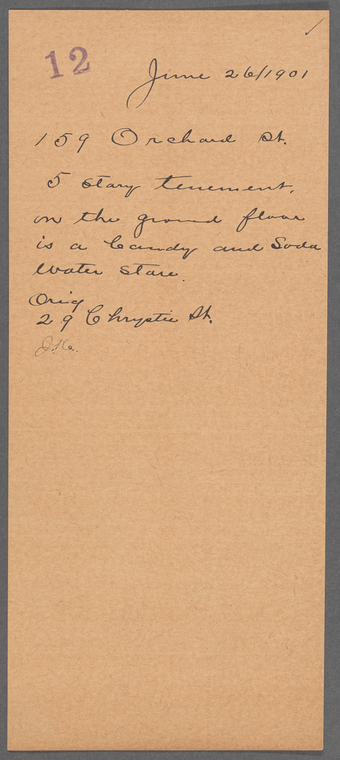 12
June 26/1901
159 Orchard St.
5 story tenement,
on the ground floor
is a Candy and Soda
Water store.
Orig
29 Chrystie St.